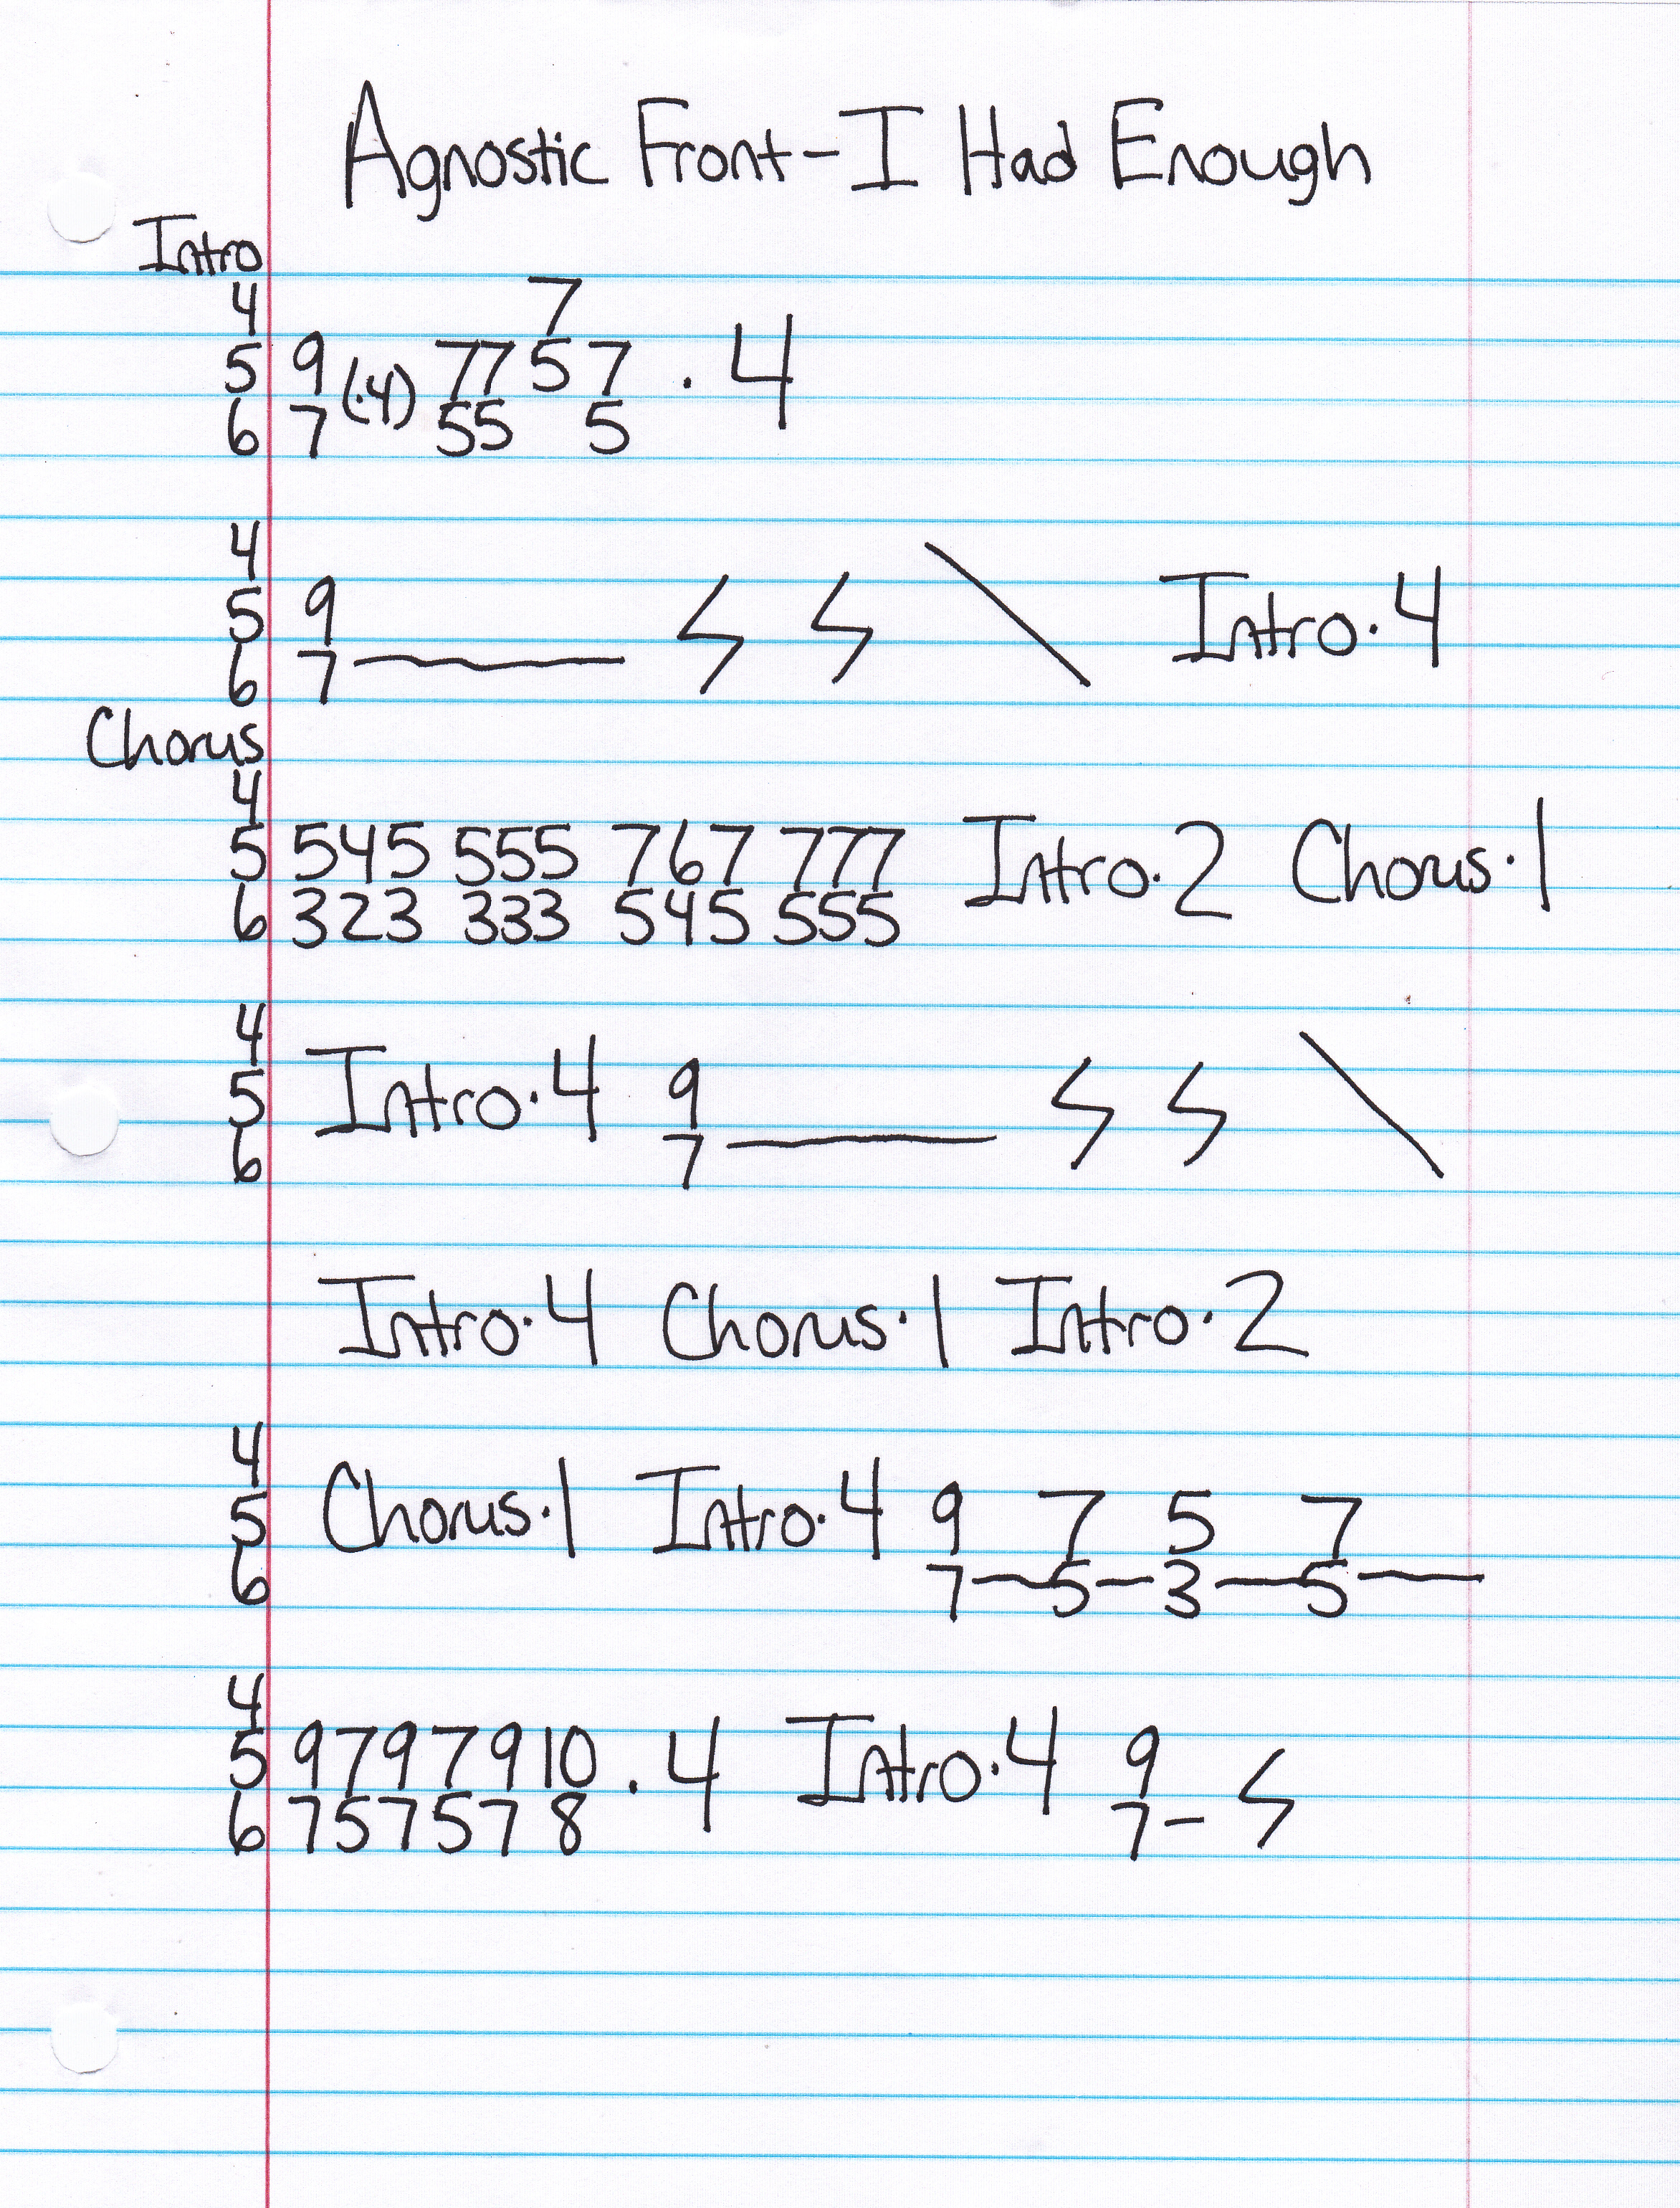 Agnostic Front-I Had Enough
Intro
4 7
5 9 (·4) 77 5 7 · 4
6 7 55 5
4
5 9 Intro·4
6 7
Chorus
4
5 545 555 767 777 Intro·2 Chorus·1
6 323 333 545 555
4
5 Intro·4 9
6 7
Intro·4 Chorus·1 Intro·2
4
5 Chorus·1 Intro·4 9 7 5 7
6 7 5 3 5
4
5 9 7 9 7 9 10 · 4 Intro·4 9
6 7 5 7 5 7 8 7-